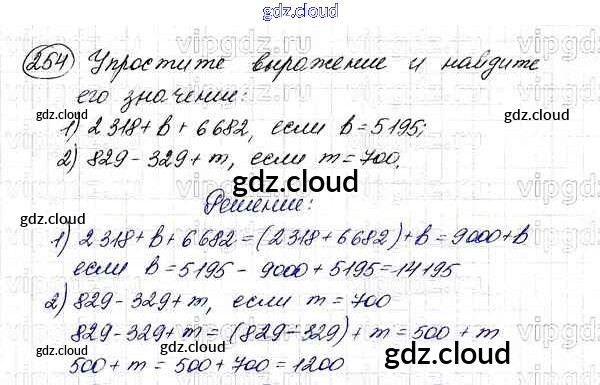 gdz.cloud
254 Упростите выражение и найдите
его значение:
1) 2318+в+6682, если в=5195;
2) 829-329+m, если m=700.
gdz.cloud
Решение:
1) 2318+в+6682=(2318+6682)+в=9000+в
если в=5195 - 9000+5195=14195
2) 829-329+m, если m=700
gdz.cloud
829-329+m=(829-329)+m=500+m
gdz.cloud
500+m=500+700=1200
gdz.cloud